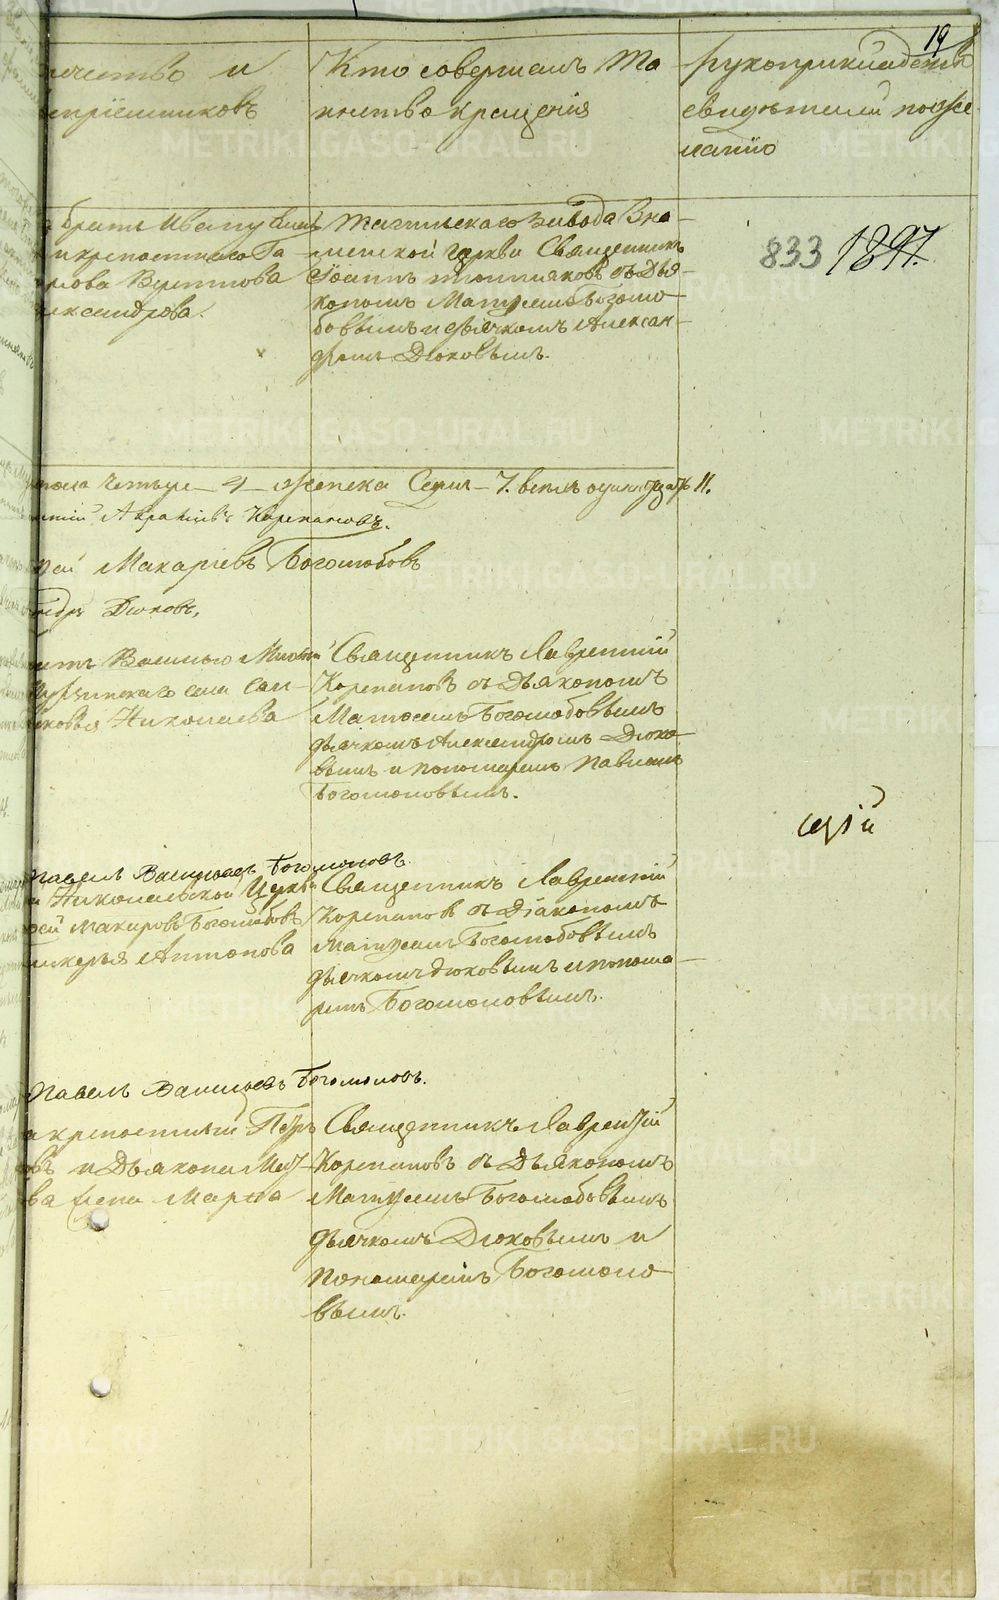 19
чество и
спріемниковъ
Кто совершалъ Та
инство крещенія
рукоприкладство
свидѣтелей по же
ланію
братъ Иванъ
крепостнаго Га
лова
лександрова.
Тагильскаго Завода
церкви Священникъ
Іоаннъ съ Дья
кономъ Матѳеемъ Боголю
бовымъ и дьячкомъ Алексан
дромъ Дюковымъ.
833 1897.
пола четыре 4 женска Седмь 7. всѣхъ одиннадцать 11.
Корепановъ.
ѳей Макаріевъ Боголюбовъ
ндръ Дюковъ,
Василью
села
Николаева
Священникъ Лаврентій
Корепановъ съ Дьякономъ
Матѳеемъ Боголюбовымъ
дьячкомъ Александромъ Дюко
вымъ и пономаремъ Павломъ
Богомоловымъ.
сей
Павелъ Васильевъ Богомоловъ.
Николаевской Церкви
ѳей Макаровъ Боголюбовъ
Антонова
Священникъ Лаврентій
Корепановъ съ Діакономъ
Матѳеемъ Боголюбовымъ
дьячкомъ Дюковымъ и понома
ремъ Богомоловымъ.
Павелъ Васильевъ Богомоловъ.
крепостный Петръ
въ и Дьякона Мат
ва жена Марѳа
Священникъ Лаврентій
Корепановъ съ Дьякономъ
Матѳеемъ Боголюбовымъ
дьячкомъ Дюковымъ и
Пономаремъ Богомоло
вымъ.
METRIKI.GASO-URAL.RU